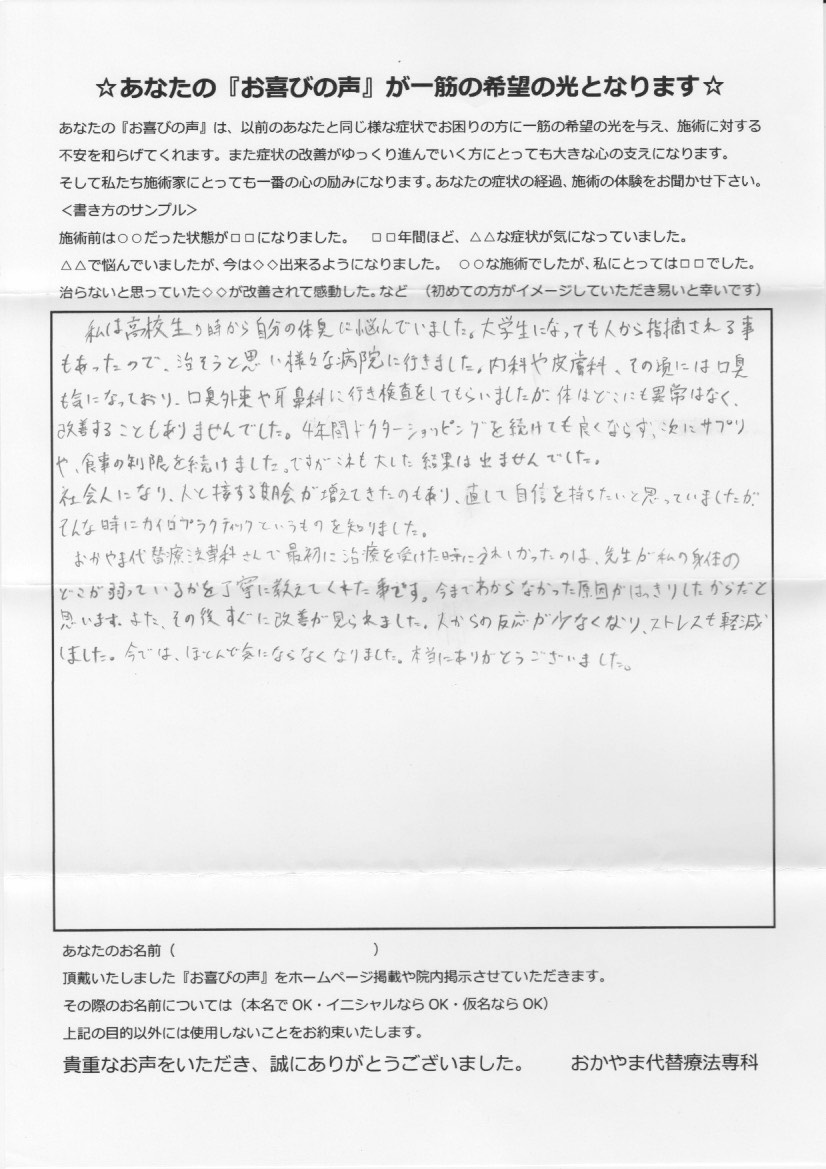 ☆あなたの『お喜びの声』が一筋の希望の光となります☆
あなたの『お喜びの声』は、以前のあなたと同じ様な症状でお困りの方に一筋の希望の光を与え、施術に対する
不安を和らげてくれます。また症状の改善がゆっくり進んでいく方にとっても大きな心の支えになります。
そして私たち施術家にとっても一番の心の励みになります。あなたの症状の経過、施術の体験をお聞かせ下さい。
＜書き方のサンプル＞
施術前は○○だった状態が□□になりました。　□□年間ほど、△△な症状が気になっていました。
△△で悩んでいましたが、今は◇◇出来るようになりました。　○○な施術でしたが、私にとっては□□でした。
治らないと思っていた◇◇が改善されて感動した。など　（初めての方がイメージしていただき易いと幸いです）
私は高校生の時から自分の体臭に悩んでいました。大学生になっても人から指摘される事
もあったので、治そうと思い様々な病院に行きました。内科や皮膚科、その頃には口臭
も気になっており、口臭外来や耳鼻科に行き検査をしてもらいましたが、体はどこにも異常はなく、
改善することもありませんでした。4年間ドクターショッピングを続けても良くならず、次にサプリ
や、食事の制限を続けました。ですがこれも大した結果は出ませんでした。
社会人になり、人と接する機会が増えてきたのもあり、直して自信を持ちたいと思っていましたが、
そんな時にカイロプラクティックというものを知りました。
おかやま代替療法専科さんで最初に治療を受けた時にうれしかったのは、先生が私の身体の
どこが弱っているかを丁寧に教えてくれた事です。今までわからなかった原因がはっきりしたからだと
思います。また、その後すぐに改善が見られました。人からの反応が少なくなり、ストレスも軽減
しました。今では、ほとんど気にならなくなりました。本当にありがとうございました。
あなたのお名前（　　　　　　　　　　　　　）
頂戴いたしました『お喜びの声』をホームページ掲載や院内掲示させていただきます。
その際のお名前については（本名で OK・イニシャルなら OK・仮名なら OK）
上記の目的以外には使用しないことをお約束いたします。
貴重なお声をいただき、誠にありがとうございました。　　おかやま代替療法専科